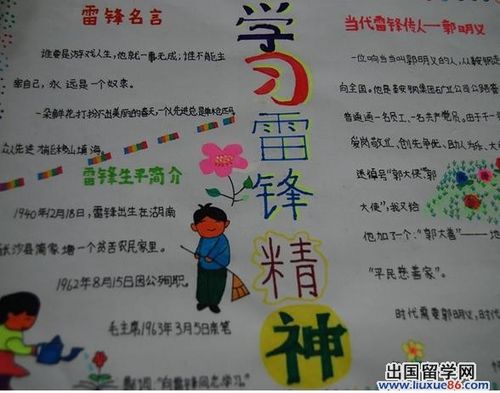 学习雷锋精神
雷锋名言
谁要是游戏人生，他就一事无成；谁不能主
宰自己，永远是一个奴隶。
一朵鲜花打扮不出美丽的春天，一个人先进总是单枪匹马
众人先进才能移山填海。
雷锋生平简介
1940年12月18日，雷锋出生在湖南
长沙县简家塘一个贫苦农民家里。
1962年8月15日因公殉职。
毛主席1963年3月5日亲笔
题词"向雷锋同志学习"
当代雷锋传人——郭明义
一位响当当叫郭明义的人，从鞍钢走
向全国。他是鞍钢集团矿业公司公路管
普通通一名员工，一名共产党员。由于千一
爱岗敬业、创先争优、助人为乐、大
送绰号"郭大傻"
大使"，我又给
他加了一个、"郭大善"——地
"平民慈善家"。
时代需要郭明义，时
出国留学网
www.liuxue86.com